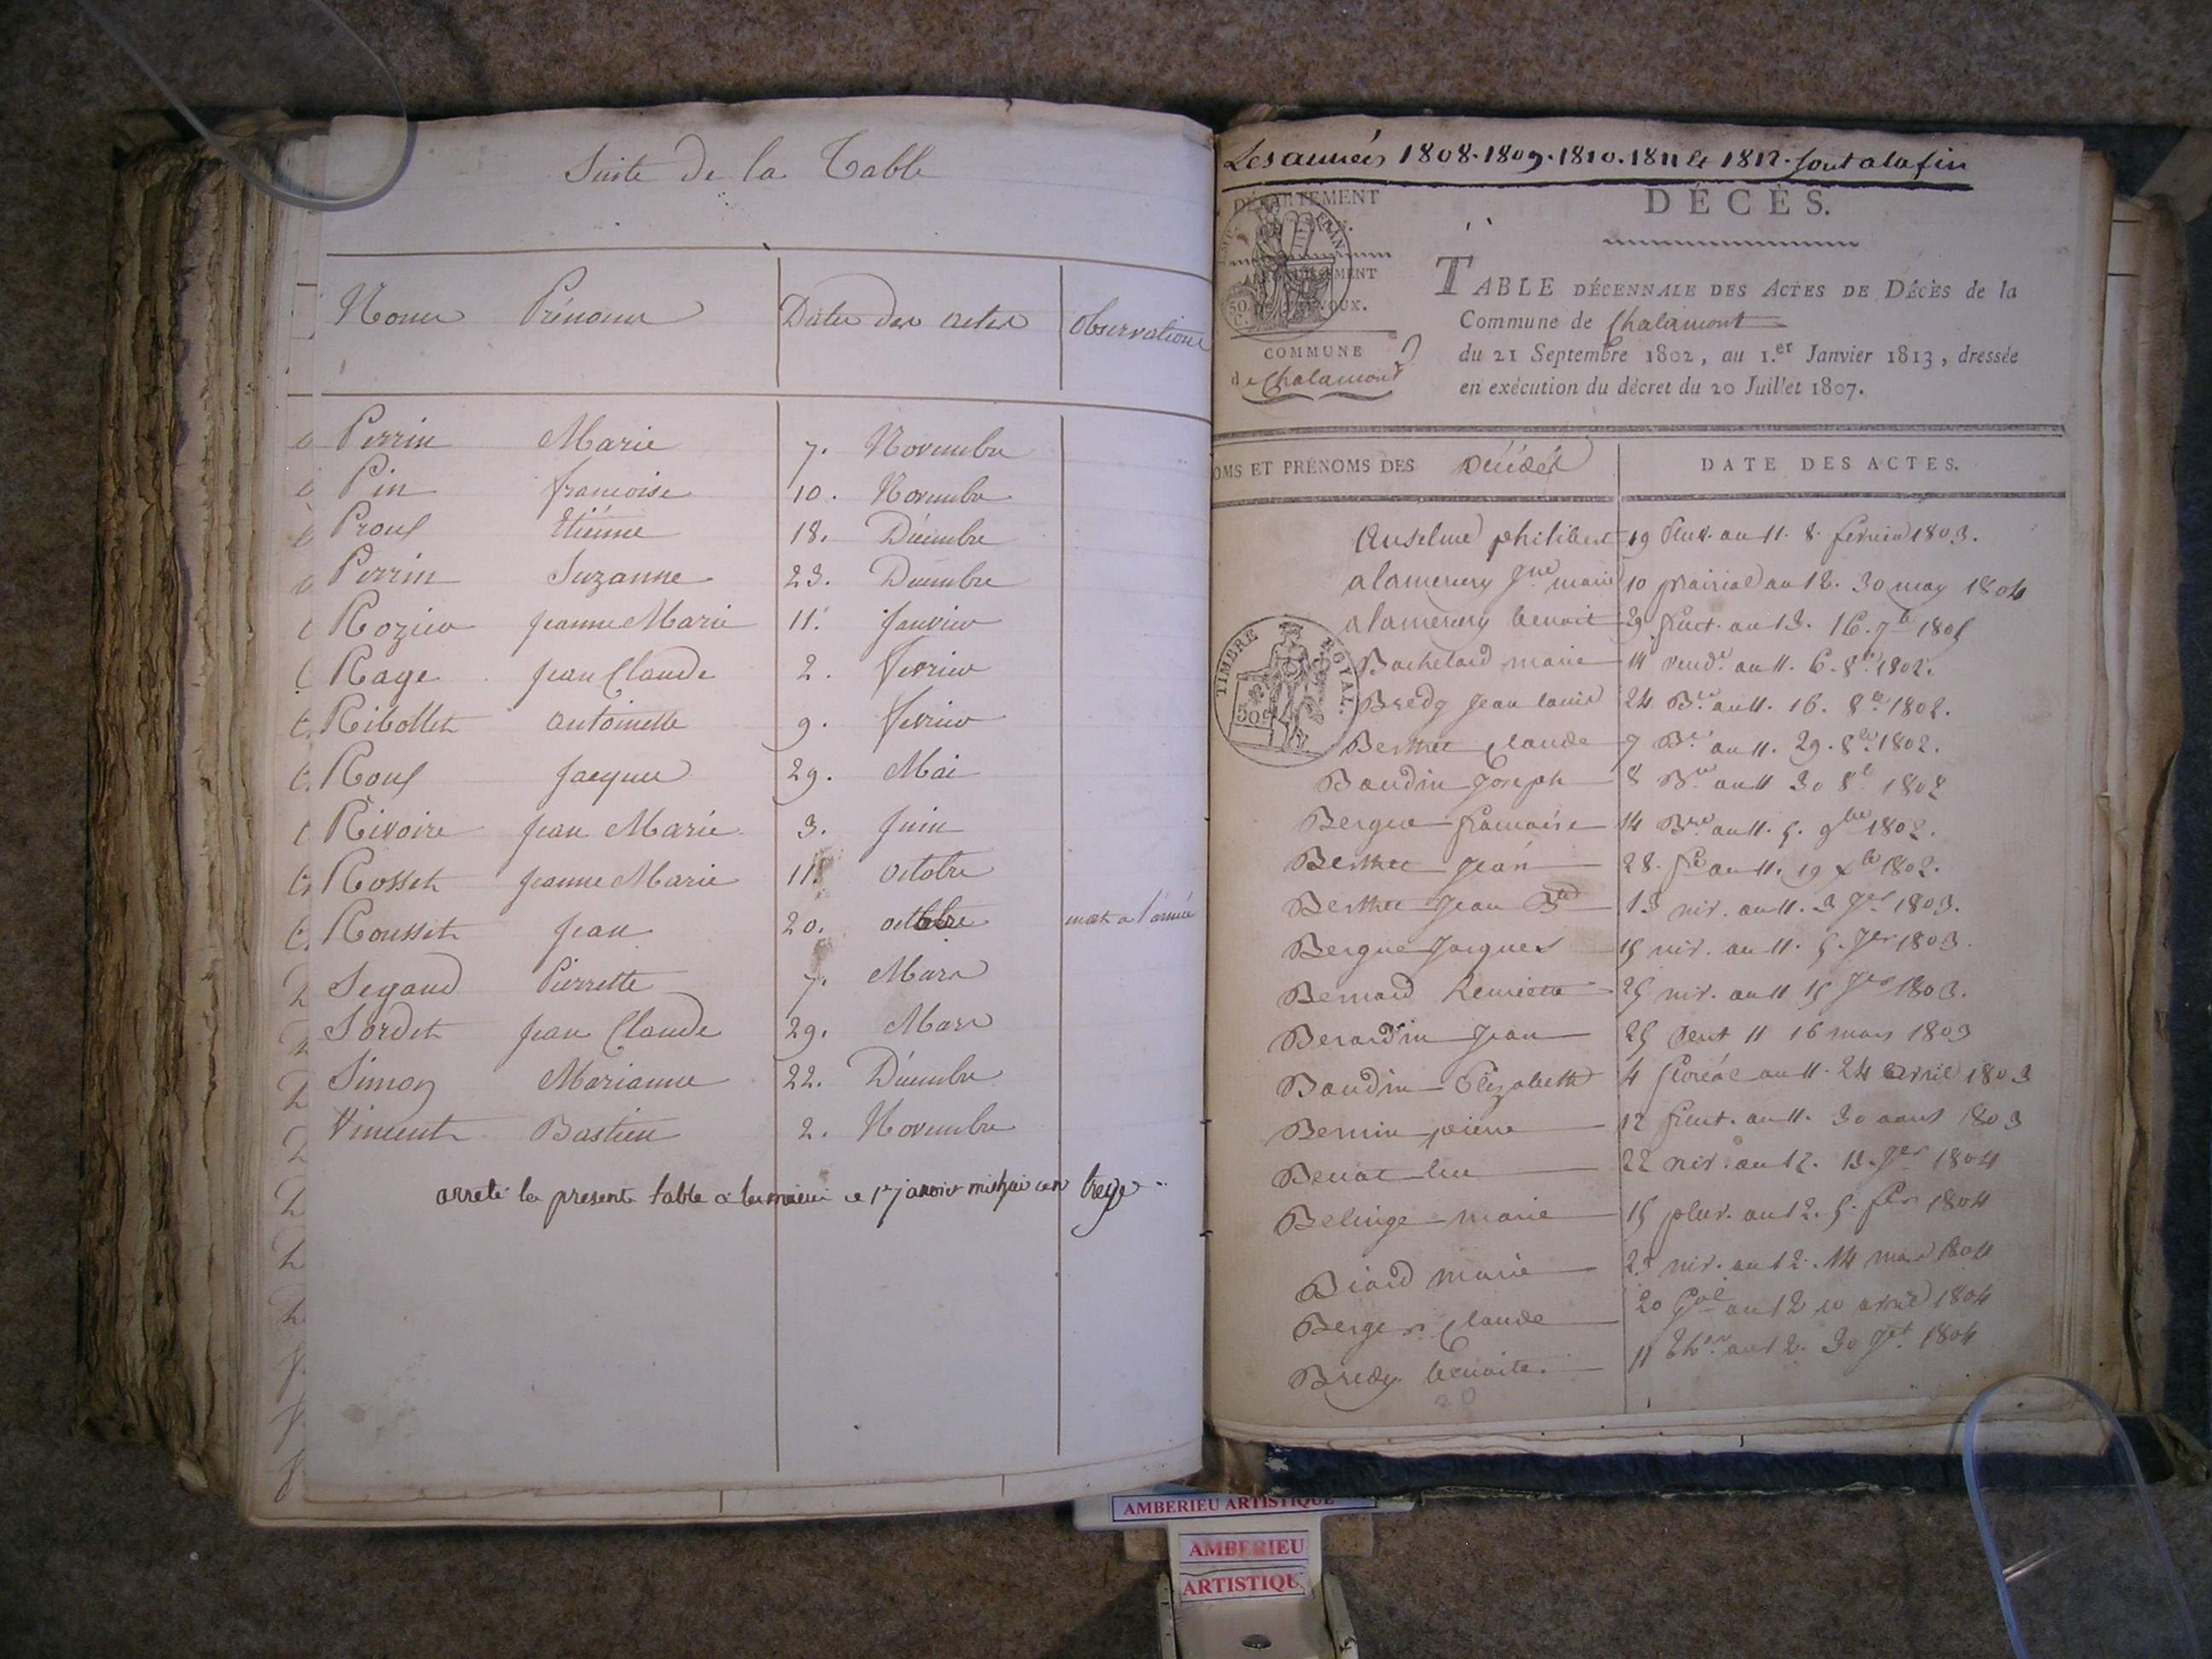 Suite de la Table
Noms Prénoms Dates des actes Observations
Perrin Marie 7. Novembre
Pin françoise 10. Novembre
Proux Etiénne 18. Décembre
Perrin Suzanne 23. Décembre
Rozier jeanne Marie 11. janvier
Rage jean Claude 2. fevrier
Ribollet antoinette 9. fevrier
Roux jacques 29. Mai
Rivoire jean Marie 3. juin
Rosset jeanne Marie 11. octobre
Rousset jean 20. octobre mort a l'armée
Segaud Pierrette 7. Mars
Sordet jean Claude 29. Mars
Simon Marianne 22. Décembre
Vincent Bastien 2. Novembre
arreté la presente table a la mairie ce 1er janvier mil huit cent treize
Les années 1808. 1809. 1810. 1811 et 1812. sont a la fin
DÉPARTEMENT
COMMUNE
de Chalamont
DÉCÈS.
TABLE DÉCENNALE DES ACTES DE DÉCÈS de la
Commune de Chalamont
du 21 Septembre 1802, au 1.er Janvier 1813, dressée
en exécution du décret du 20 Juillet 1807.
OMS ET PRÉNOMS DES Décédés DATE DES ACTES.
TIMBRE ROYAL.
Anselme philibert 19 Pluv. an 11. 8. fevrier 1803.
alamercery jne marie 10 prairial an 12. 30 may 1804
alamercery benoit 29 fruct. an 13. 16. 7bre 1805
Bachelard marie 14 vend.e an 11. 6. 8bre 1802.
Bredy jean louis 24 an 11. 16. 8bre 1802.
Berthet Claude 7 Bre an 11. 29. 8bre 1802.
Baudin Joseph 8 Bre an 11 30 8bre 1802
Bergue francoise 14 Bre an 11. 5. 9bre 1802.
Berthet jean 28. fre an 11. 19 xbre 1802.
Berthet jean Bte 13 niv. an 11. 3 jer 1803.
Bergue jacques 15 niv. an 11. 5. jer 1803.
Bernard henriette 25 niv. an 11 15 jer 1803.
Berardin jean 25 vent 11 16 mars 1803
Baudin Elizabeth 4 floréal an 11. 24 avril 1803
Bernin pierre 12 fruct. an 11. 30 aout 1803
Benat luc 22 niv. an 12. 13. jer 1804
Belinge marie 15 pluv. an 12. 5. fer 1804
Biard marie 23 an 12. 14 mars 1804
Berger Claude 20 Gal an 12 10 avril 1804
Bredy benoite. 11 ther. an 12. 30 jet 1804
20
AMBERIEU ARTISTIQUE
AMBERIEU
ARTISTIQU